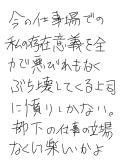 今の仕事場での
私の存在意義を全
力で悪びれもなく
ぶち壊してくる上司
に憤りしかない。
部下の仕事の立場
なくして楽しいかよ